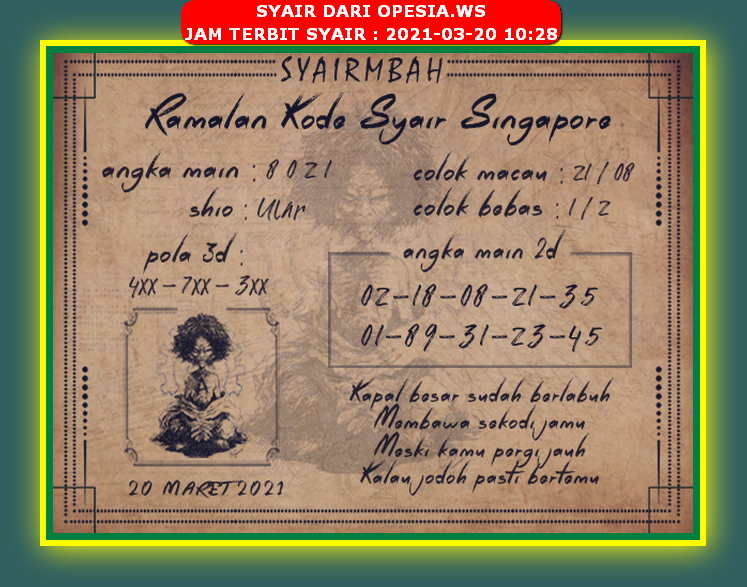 SYAIR DARI OPESIA.WS
JAM TERBIT SYAIR : 2021-03-20 10:28
SYAIRMBAH
Ramalan Kode Syair Singapore
angka main : 8 0 2 1
colok macau : 21 / 08
shio : Ular
colok bebas : 1 / 2
pola 3d :
4XX - 7XX - 3XX
angka main 2d
02-18-08-21-35
01-89-31-23-45
Kapal besar sudah berlabuh
Membawa sekodi jamu
Meski kamu pergi jauh
Kalau jodoh pasti bertemu
20 MARET 2021